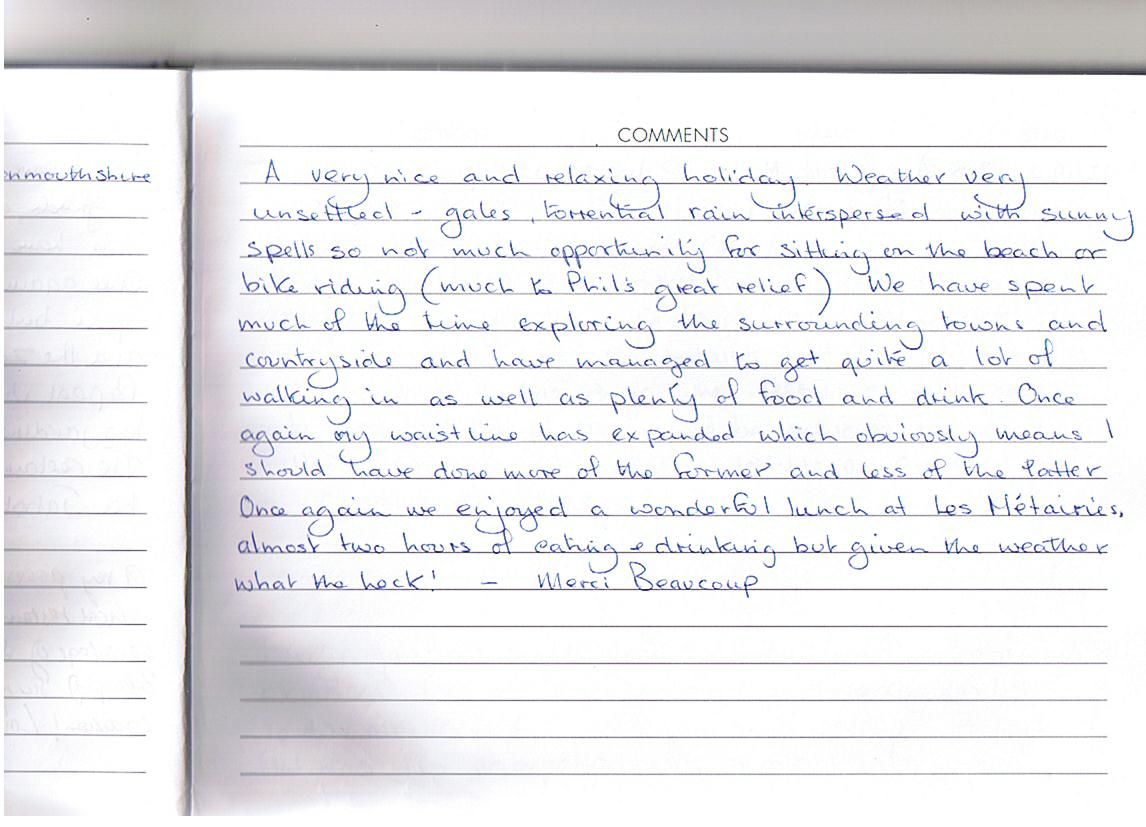 COMMENTS
onmouthshire
A very nice and relaxing holiday. Weather very
unsettled - gales, torrential rain interspersed with sunny
spells so not much opportunity for sitting on the beach or
bike riding (much to Phil's great relief) We have spent
much of the time exploring the surrounding towns and
countryside and have managed to get quite a lot of
walking in as well as plenty of food and drink. Once
again my waistline has expanded which obviously means I
should have done more of the former and less of the latter
Once again we enjoyed a wonderful lunch at Les Métairies,
almost two hours of eating + drinking but given the weather
what the heck! - Merci Beaucoup